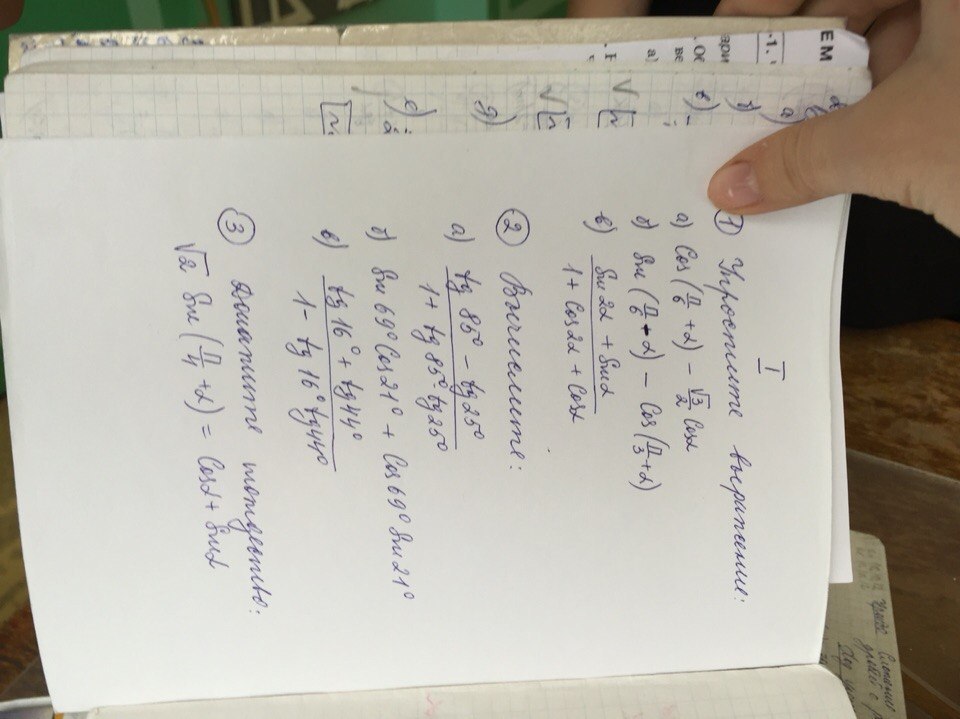 I
① Упростите выражение:
а) Cos(π/6 + α) - √3/2 Cosα
б) Sin(π/6 - α) - Cos(π/3 + α)
в) (Sin2α + Sinα)/(1 + Cos2α + Cosα)
② Вычислите:
а) (tg 85° - tg 25°)/(1 + tg 85° tg 25°)
б) Sin 69° Cos 21° + Cos 69° Sin 21°
в) (tg 16° + tg 44°)/(1 - tg 16° tg 44°)
③ Докажите тождество:
√2 Sin(π/4 + α) = Cosα + Sinα